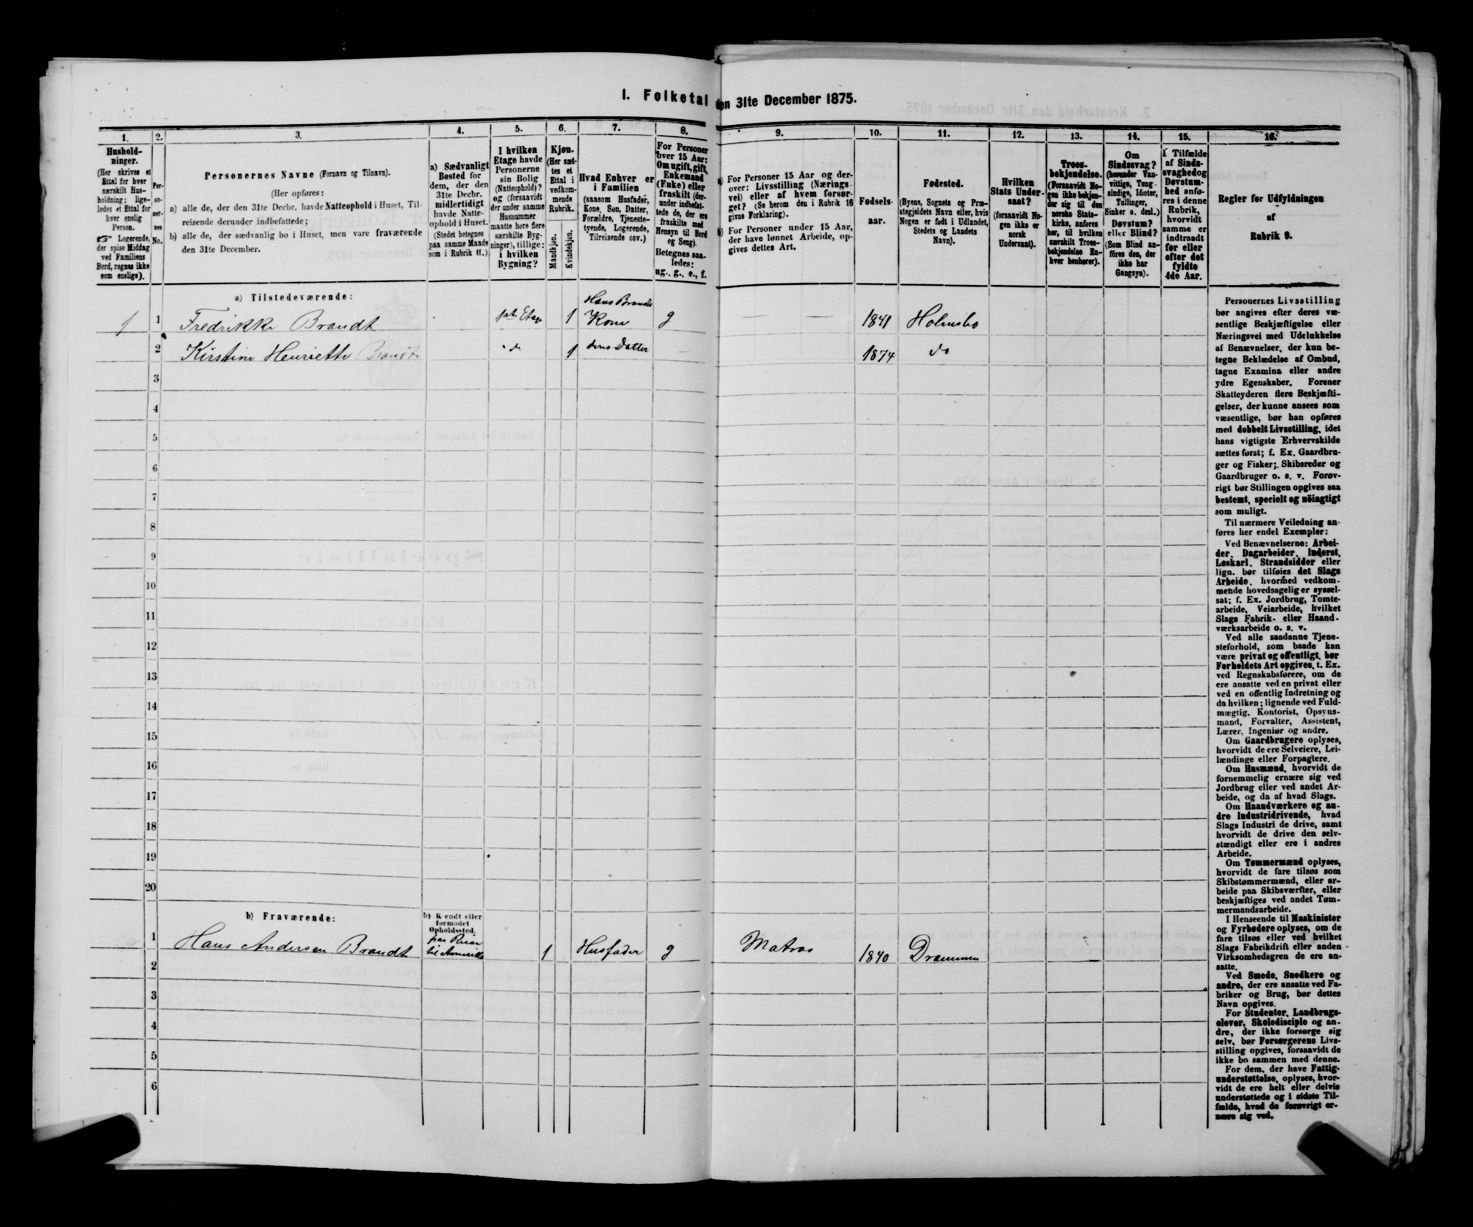 1. Folketal den 31te December 1875.
1. 2. 3. 4. 5. 6. 7. 8. 9. 10. 11. 12. 13. 14. 15. 16.
Hushold-
ninger.
(Her skrives et
Ettal for hver
særskilt Hus-
holdning; lige-
ledes et Ettal for
hver enslig
Person.
☞ Logerende,
der spise Middag
ved Familiens
Bord, regnes ikke
som enslige).
Per-
so-
ner-
nes
No.
Personernes Navne (Fornavn og Tilnavn).
(Her opføres:
a) alle de, der den 31te Decbr. havde Natteophold i Huset, Til-
reisende derunder indbefattede;
b) alle de, der sædvanlig bo i Huset, men vare fraværende
den 31te December.
a) Sædvanligt
Bosted for
dem, der den
31te Decbr.
midlertidigt
havde Natte-
ophold i Huset.
(Stedet betegnes
paa samme Maade
som i Rubrik 11.)
I hvilken
Etage havde
Personerne
sin Bolig
(Natteophold)?
og (forsaavidt
der under samme
Husnummer
maatte høre flere
særskilte Byg-
ninger), tillige:
i hvilken
Bygning?
Kjøn.
(Her sæt-
tes et
Ettal i
vedkom-
mende
Rubrik.
Mandkjøn.
Kvindekjøn.
Hvad Enhver er
i Familien
(saasom Husfader,
Kone, Søn, Datter,
Forældre, Tjeneste-
tyende, Logerende,
Tilreisende osv.)
For Personer
over 15 Aar:
Om ugift, gift,
Enkemand
(Enke) eller
fraskilt (der-
under indbefat-
tede de, der ere
fraskilte med
Hensyn til Bord
og Seng).
Betegnes saa-
ledes:
ug., g., e., f.
a) For Personer 15 Aar og der-
over: Livsstilling (Nærings-
vei) eller af hvem forsør-
get? (Se herom den i Rubrik 16
givne Forklaring).
b) For Personer under 15 Aar,
der have lønnet Arbeide, op-
gives dettes Art.
Fødsels-
aar.
Fødested.
(Byens, Sognets og Præ-
stegjeldets Navn eller, hvis
Nogen er født i Udlandet,
Stedets og Landets
Navn).
Hvilken
Stats Under-
saat?
(forsaavidt No-
gen ikke er
norsk
Undersaat).
Troes-
bekjendelse.
(Forsaavidt No-
gen ikke bekjen-
der sig til den
norske Stats-
kirke, anføres
her, til hvilken
særskilt Troes-
bekjendelse En-
hver henhører).
Om
Sindssvag?
(herunder Van-
vittige, Tung-
sindige, Idioter,
Tullinger,
Sinker o. desl.)
Døvstum?
eller Blind?
(Som Blind an-
føres den, der
ikke har
Gangsyn).
I Tilfælde
af Sinds-
svaghed og
Døvstum-
hed anfø-
res i denne
Rubrik,
hvorvidt
samme er
indtraadt
før eller
efter det
fyldte
4de Aar.
Regler for Udfyldningen
af
Rubrik 9.
a) Tilstedeværende:
1 1 Fredrikke Brandt 1ste Etage 1 Hans Brandts
Kone g — — 1841 Holmsbo
2 Kirstine Henriette Brandt " do 1 dens Datter — 1874 do
3
4
5
6
7
8
9
10
11
12
13
14
15
16
17
18
19
20
b) Fraværende:
b) Kjendt eller
formodet
Opholdssted.
1 Hans Andersen Brandt paa Reise
til Amerika 1 Husfader g Matros 1840 Drammen
2
3
4
5
6
Personernes Livsstilling
bør angives efter deres væ-
sentlige Beskjæftigelse eller
Næringsvei med Udelukkelse
af Benævnelser, der kun be-
tegne Beklædelse af Ombud,
tagne Examina eller andre
ydre Egenskaber. Forener
Skatteyderen flere Beskjæfti-
gelser, der kunne ansees som
væsentlige, bør han opføres
med dobbelt Livsstilling, idet
hans vigtigste Erhvervskilde
sættes først; f. Ex. Gaardbru-
ger og Fisker; Skibsreder og
Gaardbruger o. s. v. Forøv-
rigt bør Stillingen opgives saa
bestemt, specielt og nöiagtigt
som muligt.
Til nærmere Veiledning an-
føres her endel Exempler:
Ved Benævnelserne: Arbei-
der, Dagarbeider, Inderst,
Løskarl, Strandsidder eller
lign. bør tilføies det Slags
Arbeide, hvormed vedkom-
mende hovedsagelig er syssel-
sat; f. Ex. Jordbrug, Tomte-
arbeide, Veiarbeide, hvilket
Slags Fabrik- eller Haand-
værksarbeide o. s. v.
Ved alle saadanne Tjene-
steforhold, som baade kan
være privat og offentligt, bør
Forholdets Art opgives, t. Ex.
ved Regnskabsførere, om de
ere ansatte ved en privat eller
ved en offentlig Indretning og
da hvilken; lignende ved Fuld-
mægtig, Kontorist, Opsyns-
mand, Forvalter, Assistent,
Lærer, Ingeniør og andre.
Om Gaardbrugere oplyses,
hvorvidt de ere Selveiere, Lei-
lændinge eller Forpagtere.
Om Husmænd, hvorvidt de
fornemmelig ernære sig ved
Jordbrug eller ved andet Ar-
beide, og da af hvad Slags.
Om Haandværkere og an-
dre Industridrivende, hvad
Slags Industri de drive, samt
hvorvidt de drive den selv-
stændigt eller ere i andres
Arbeide.
Om Tømmermænd oplyses,
hvorvidt de fare tilsøs som
Skibstømmermænd, eller ar-
beide paa Skibsværfter, eller
beskjæftiges ved andet Tøm-
mermandsarbeide.
I Henseende til Maskinister
og Fyrbødere oplyses, om de
fare tilsøs eller ved hvilket
Slags Fabrikdrift eller anden
Virksomhedsgren de ere an-
satte.
Ved Smede, Snedkere og
andre, der ere ansatte ved Fa-
briker og Brug, bør dettes
Navn opgives.
For Studenter, Landbrugs-
elever, Skoledisciple og an-
dre, der ikke forsørge sig
selv, bør Forsørgerens Livs-
stilling opgives, forsaavidt de
ikke bo sammen med denne.
For dem, der have Fattig-
understøttelse, oplyses, hvor-
vidt de ere helt eller delvis
understøttede og i sidste Til-
fælde, hvad de forøvrigt er-
nære sig ved.